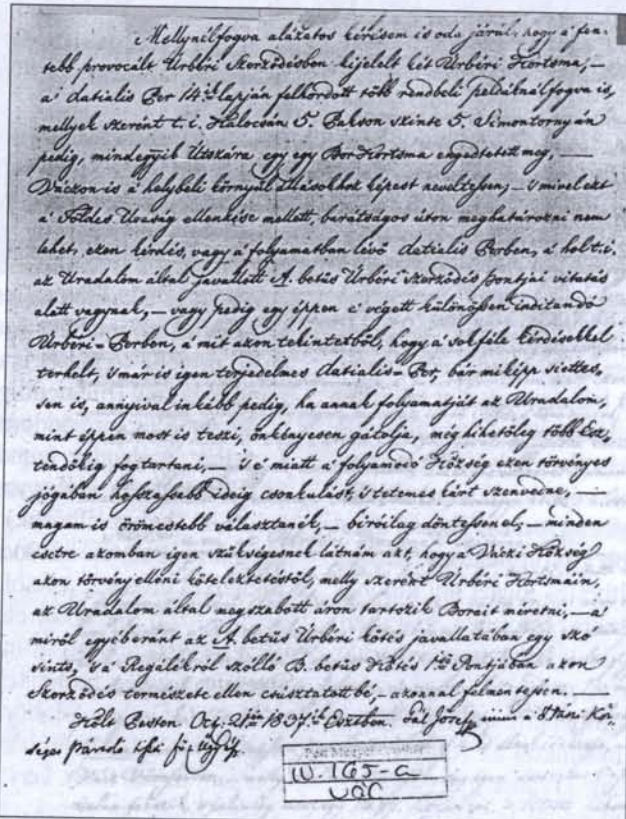 Mellynélfogva alázatos kérésem is oda járúl, hogy a' fen-
tebb provocált Úrbéri Szerződésben kijelelt két Úrbéri Kortsma, –
a' datialis Per 14ik lapján felhordott több rendbeli példáknál fogva is,
mellyek szerént t. i. Kalocsán 5. Pakson szinte 5. Simontornyán
pedig, mindegyik Útszára egy egy Bor Kortsma engedtetett meg, —
Váczon is a' helybeli környűlállásokhoz képest neveltessen; – 's mivel ezt
a' Földes Uraság ellenkése mellett, barátságos úton meghatározni nem
lehet, ezen kérdés, vagy a' folyamatban lévő datialis Perben, a' hol t. i.
az Uradalom által javallott A. betűs Úrbéri Szerződés pontjai vitatás
alatt vagynak, – vagy pedig egy éppen e' végett különössen inditandó
Úrbéri-Perben, a' mit azon tekintetből, hogy a' sok féle kérdésekkel
terhelt, 's már is igen terjedelmes datialis-Per, bár miképp siettes-
sen is, annyival inkább pedig, ha annak folyamatját az Uradalom,
mint éppen most is teszi, önkényesen gátolja, még hihetőleg több Esz-
tendőkig fog tartani, – 's e' miatt a' folyamodó Község ezen törvényes
jógában hosszassabb ideig csonkulást, 's tetemes kárt szenvedne, —
magam is örömestebb választanék, – biróilag döntessen el; – minden
esetre azomban igen szükségesnek látnám azt, hogy a' Váczi Község
azon törvény elleni köteleztetéstől, melly szerént Úrbéri Kortsmáin,
az Uradalom által megszabott áron tartozik Borait méretni, – a'
miről egyéberánt az A. betűs Úrbéri kötés javallatában egy szó
sints, 's a' Regálékról szólló B. betűs Kötés 1ső Pontjában azon
Szerződés természete ellen csúsztatott bé, – azonnal felmentessen. —
Költ Pesten Oct. 21én 1837ik Esztben. Pál József a' Ptáni Köz-
séges fő Ügyész
Pest Megyei
IV. 165-a